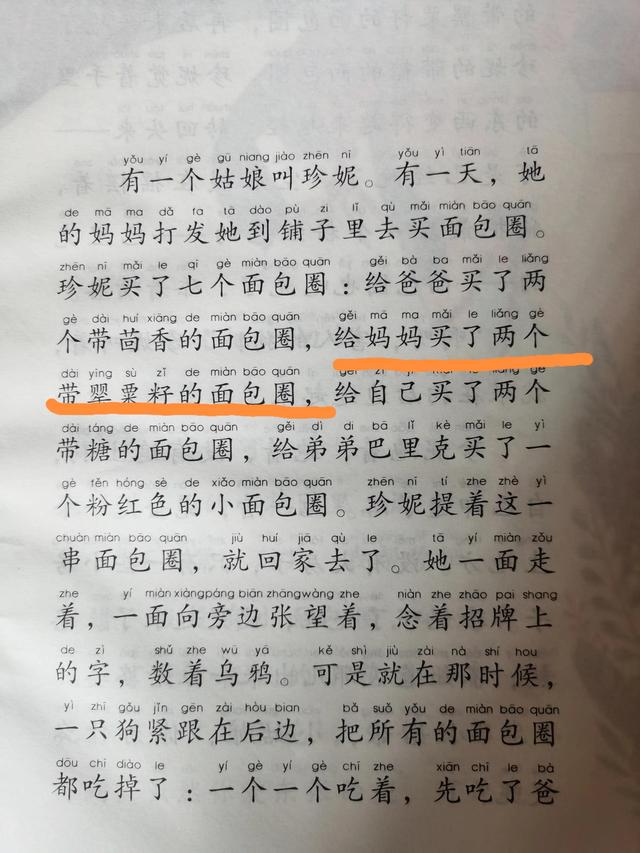 yǒu yí gè gū niang jiào zhēn nī yǒu yì tiān tā
有一个姑娘叫珍妮。有一天，她
de mā ma dǎ fa tā dào pù zi lǐ qù mǎi miàn bāo quān
的妈妈打发她到铺子里去买面包圈。
zhēn nī mǎi le qī gè miàn bāo quān gěi bà ba mǎi le liǎng
珍妮买了七个面包圈：给爸爸买了两
gè dài huí xiāng de miàn bāo quān gěi mā ma mǎi le liǎng gè
个带茴香的面包圈，给妈妈买了两个
dài yīng sù zǐ de miàn bāo quān gěi zì jǐ mǎi le liǎng gè
带罂粟籽的面包圈，给自己买了两个
dài táng de miàn bāo quān gěi dì di bā lǐ kè mǎi le yí
带糖的面包圈，给弟弟巴里克买了一
gè fěn hóng sè de xiǎo miàn bāo quān zhēn nī tí zhe zhè yí
个粉红色的小面包圈。珍妮提着这一
chuàn miàn bāo quān jiù huí jiā qù le tā yí miàn zǒu
串面包圈，就回家去了。她一面走
zhe yí miàn xiàng páng biān zhāng wàng zhe niàn zhe zhāo pai shang
着，一面向旁边张望着，念着招牌上
de zì shǔ zhe wū yā kě shì jiù zài nà shí hou
的字，数着乌鸦。可是就在那时候，
yì zhī gǒu jǐn gēn zài hòu bian bǎ suǒ yǒu de miàn bāo quān
一只狗紧跟在后边，把所有的面包圈
dōu chī diào le yí gè yí gè chī zhe xiān chī le bà
都吃掉了：一个一个吃着，先吃了爸